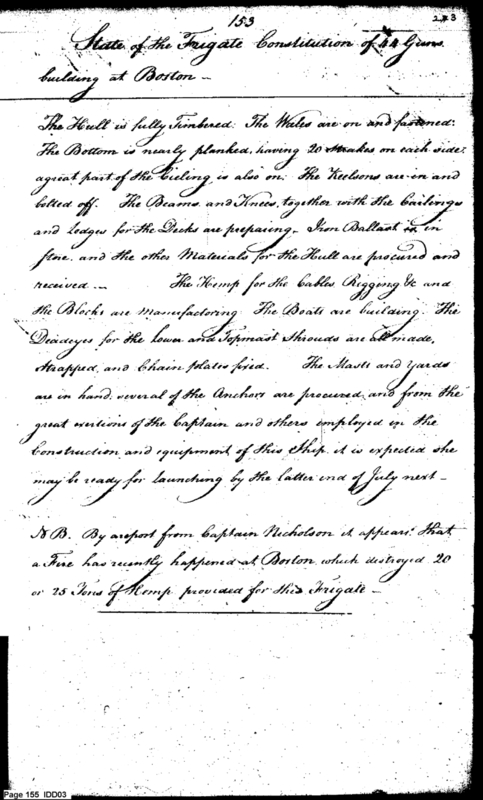 153
243
State of the Frigate Constitution of 44 Guns
building at Boston —
The Hull is fully Timbered. The Wales are on and fastened.
The Bottom is nearly planked, having 20 strakes on each side,
a great part of the Cieling is also on. The Keelsons are in and
bolted off. The Beams and Knees, together with the Carlinges
and Ledges for the Decks are preparing. Iron Ballast is in
store, and the other Materials for the Hull are procured and
received. — The Hemp for the Cables Rigging &c and
the Blocks are manufacturing The Boats are building. The
Deadeyes for the lower and Topmast Shrouds are all made,
strapped, and Chain plates fixed. The Masts and Yards
are in hand, several of the Anchors are procured, and from the
great exertions of the Captain and others employed in the
Construction and equipment of this Ship, it is expected she
may be ready for launching by the latter end of July next —
N B. By a report from Captain Nicholson it appears, that
a Fire has recently happened at Boston which destroyed 20
or 25 Tons of Hemp provided for this Frigate —
Page 155 IDD03